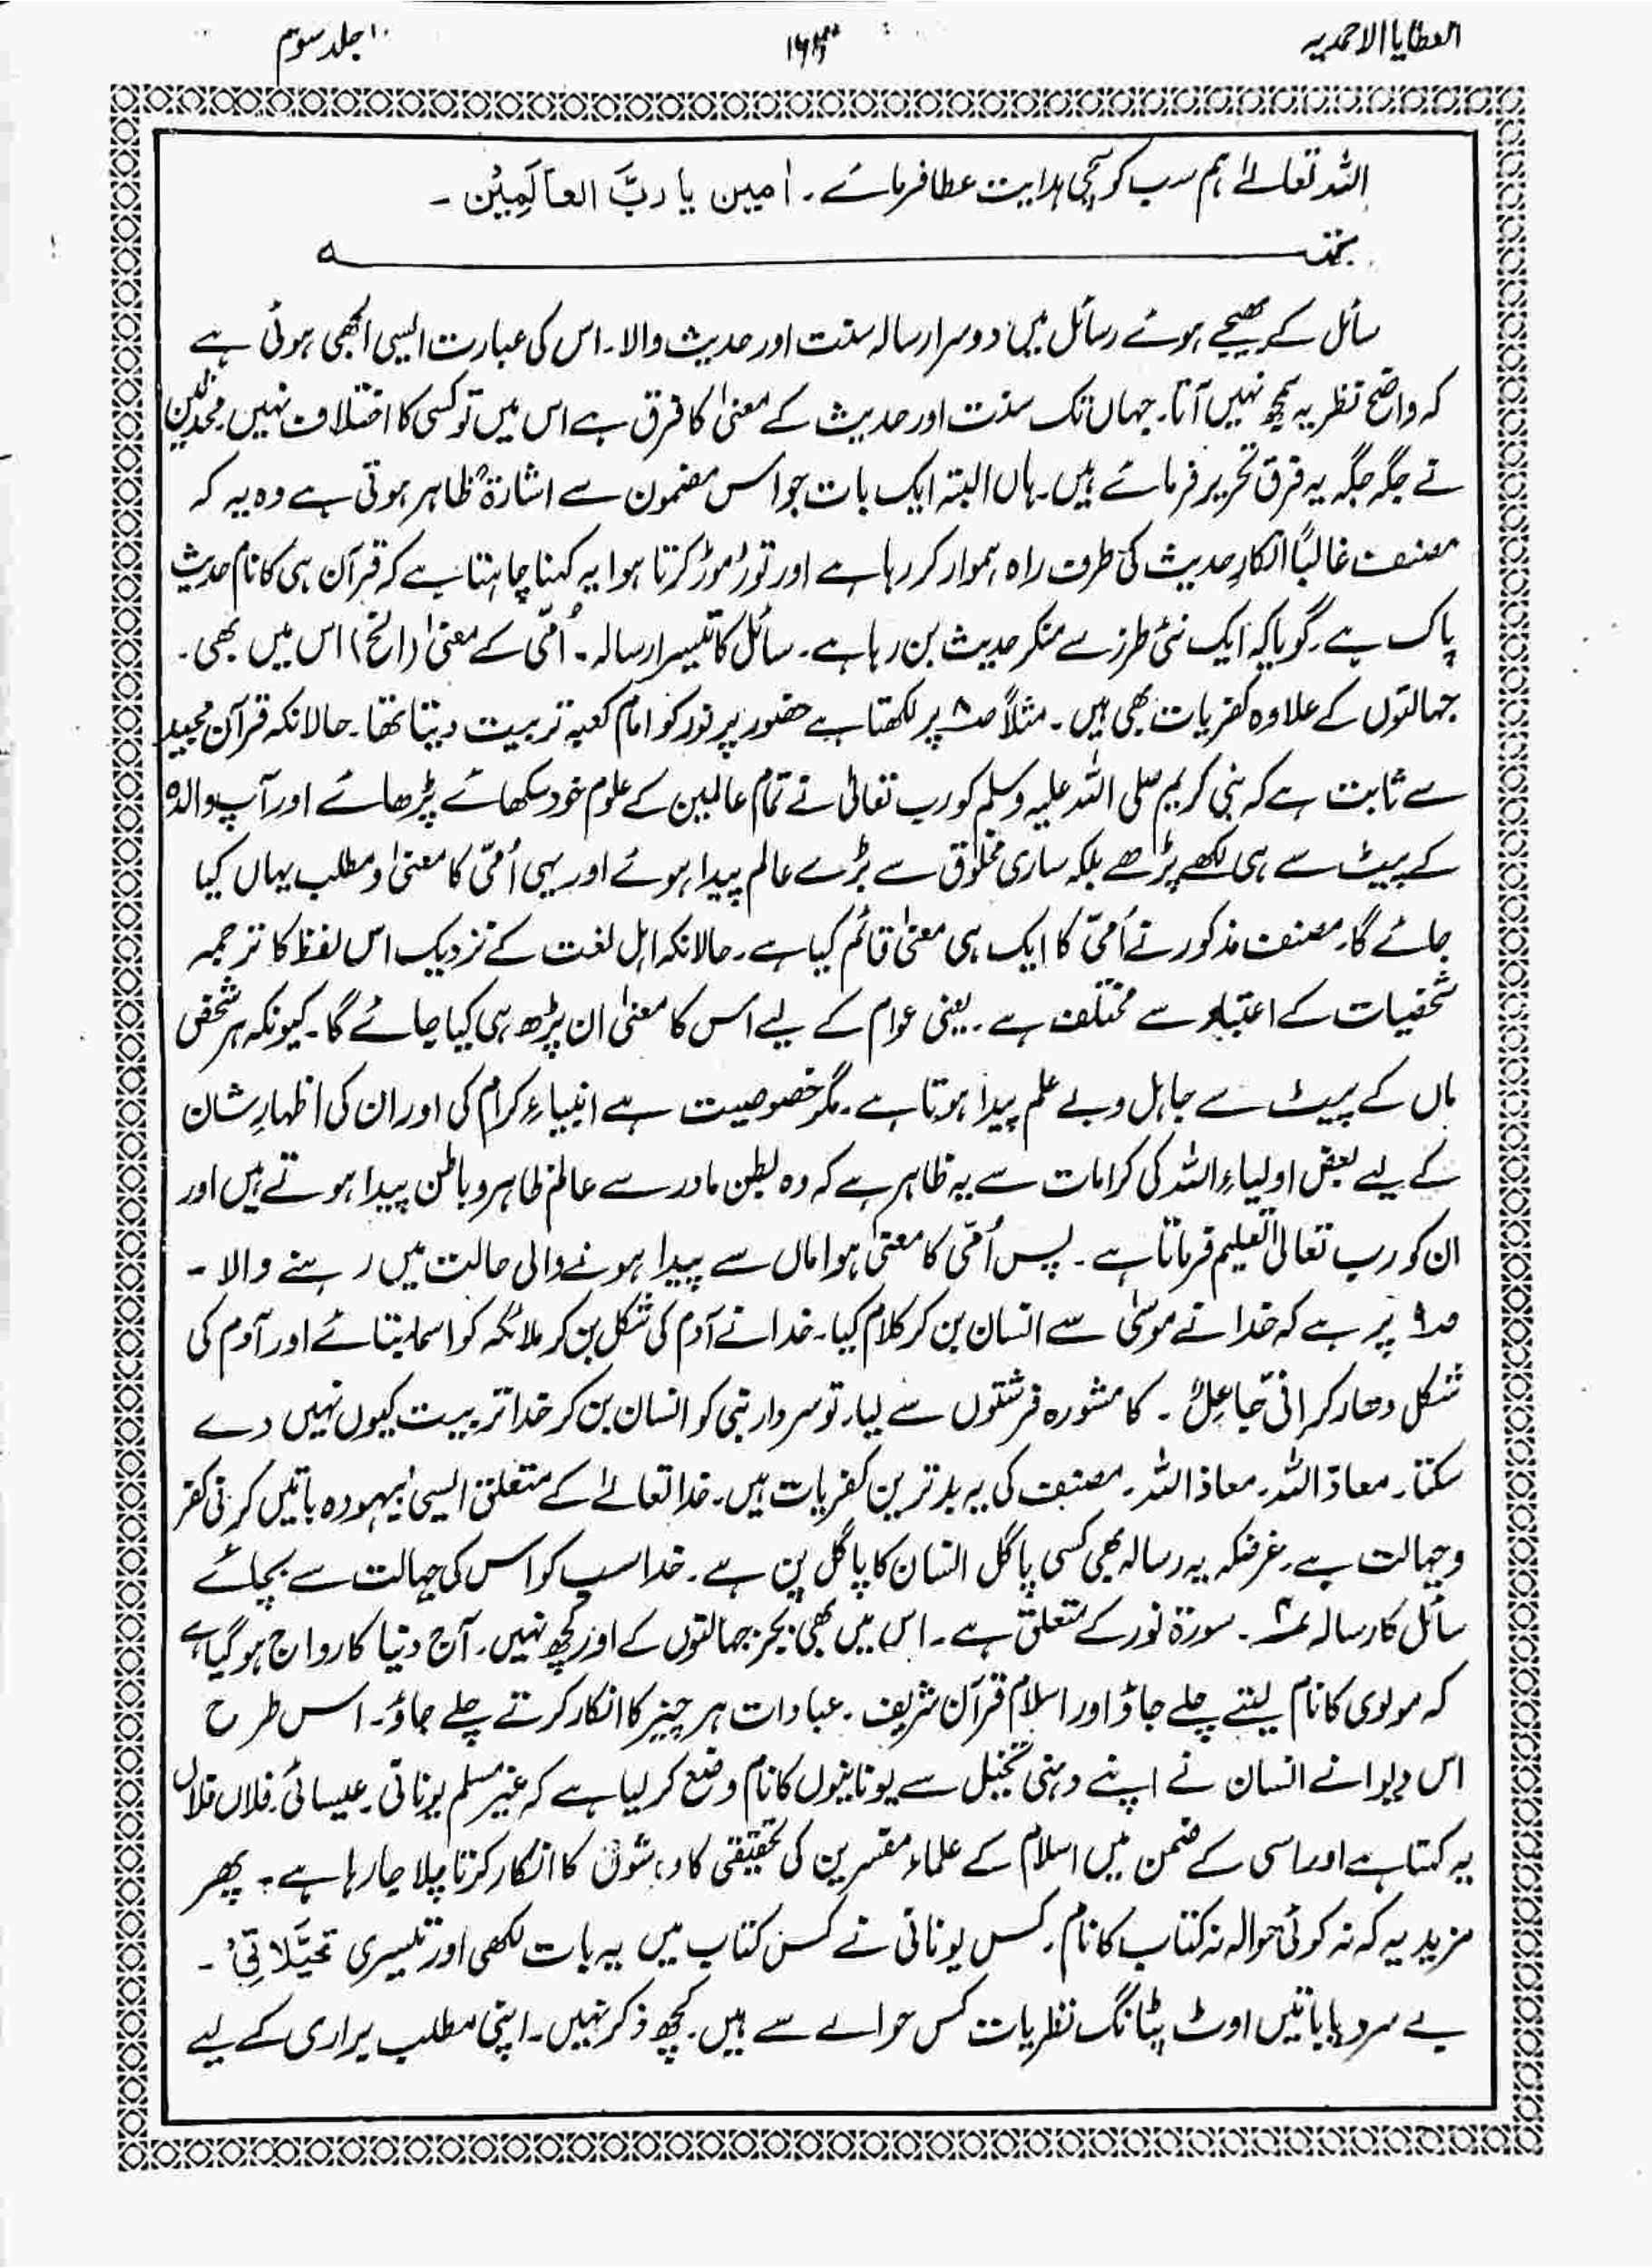 العطایا الاحمدیہ
۱۶۳
جلد سوم
اللہ تعالےٰ ہم سب کو سچی ہدایت عطا فرمائے۔ اٰمین یا ربَّ العالَمِیْن۔
سائل کے بھیجے ہوئے رسائل میں دوسرا رسالہ سنت اور حدیث والا۔ اس کی عبارت ایسی الجھی ہوئی ہے
کہ واضح نظریہ سمجھ نہیں آتا۔ جہاں تک سنت اور حدیث کے معنیٰ کا فرق ہے اس میں تو کسی کا اختلاف نہیں محدثین
نے جگہ جگہ یہ فرق تحریر فرمائے ہیں۔ ہاں البتہ ایک بات جو اس مضمون سے اشارۃً ظاہر ہوتی ہے وہ یہ کہ
مصنف غالباً انکارِ حدیث کی طرف راہ ہموار کر رہا ہے اور توڑ موڑ کرتا ہوا یہ کہنا چاہتا ہے کہ قرآن ہی کا نام حدیث
پاک ہے۔ گویا کہ ایک نئی طرز سے منکر حدیث بن رہا ہے۔ سائل کا تیسرا رسالہ۔ اُمّی کے معنیٰ (الخ) اس میں بھی۔
جہالتوں کے علاوہ کفریات بھی ہیں۔ مثلاً صـ۸ پر لکھتا ہے حضور پر نور کو امام کعبہ تربیت دیتا تھا۔ حالانکہ قرآن مجید
سے ثابت ہے کہ نبی کریم صلی اللہ علیہ وسلم کو رب تعالیٰ نے تمام عالمین کے علوم خود سکھائے پڑھائے اور آپ والدہ
کے پیٹ سے ہی لکھے پڑھے بلکہ ساری مخلوق سے بڑے عالم پیدا ہوئے اور یہی اُمّی کا معنیٰ و مطلب یہاں کیا
جائے گا۔ مصنف مذکور نے اُمّی کا ایک ہی معنیٰ قائم کیا ہے۔ حالانکہ اہل لغت کے نزدیک اس لفظ کا ترجمہ
شخصیات کے اعتبار سے مختلف ہے۔ یعنی عوام کے لیے اس کا معنیٰ ان پڑھ ہی کیا جائے گا۔ کیونکہ ہر شخص
ماں کے پیٹ سے جاہل و بے علم پیدا ہوتا ہے۔ مگر خصوصیت ہے انبیاءِ کرام کی اور ان کی اظہارِ شان
کے لیے بعض اولیاءِ اللہ کی کرامات سے یہ ظاہر ہے کہ وہ بطن مادر سے عالم ظاہر و باطن پیدا ہوتے ہیں اور
ان کو رب تعالیٰ تعلیم فرماتا ہے۔ پس اُمّی کا معنیٰ ہوا ماں سے پیدا ہونے والی حالت میں رہنے والا۔
صـ۹ پر ہے کہ خدا نے موسیٰ سے انسان بن کر کلام کیا۔ خدا نے آدم کی شکل بن کر ملائکہ کو اسما بتائے اور آدم کی
شکل دھار کر انّی جَاعِلٌ۔ کا مشورہ فرشتوں سے لیا۔ تو سردار نبی کو انسان بن کر خدا تربیت کیوں نہیں دے
سکتا۔ معاذ اللہ۔ معاذ اللہ۔ مصنف کی یہ بدترین کفریات ہیں۔ خدا تعالےٰ کے متعلق ایسی بیہودہ باتیں کرنی کفر
و جہالت ہے۔ غرضکہ یہ رسالہ بھی کسی پاگل انسان کا پاگل پن ہے۔ خدا سب کو اس کی جہالت سے بچائے
سائل کا رسالہ ۴۔ سورۃ نور کے متعلق ہے۔ اس میں بھی بجز جہالتوں کے اور کچھ نہیں۔ آج دنیا کا رواج ہو گیا ہے
کہ مولوی کا نام لیتے چلے جاؤ اور اسلام قرآن شریف۔ عبادات ہر چیز کا انکار کرتے چلے جاؤ۔ اس طرح
اس دیوانے انسان نے اپنے ذہنی تخیل سے یونانیوں کا نام وضع کر لیا ہے کہ غیر مسلم یونانی۔ عیسائی۔ فلاں فلاں
یہ کہتا ہے اور اسی کے ضمن میں اسلام کے علماء مفسرین کی تحقیقی کاوشوں کا انکار کرتا چلا جا رہا ہے۔ پھر
مزید یہ کہ نہ کوئی حوالہ نہ کتاب کا نام۔ کس یونانی نے کس کتاب میں یہ بات لکھی اور تیسری تخیّلاتی۔
بے سروپا باتیں اوٹ پٹانگ نظریات کس حوالے سے ہیں۔ کچھ ذکر نہیں۔ اپنی مطلب براری کے لیے